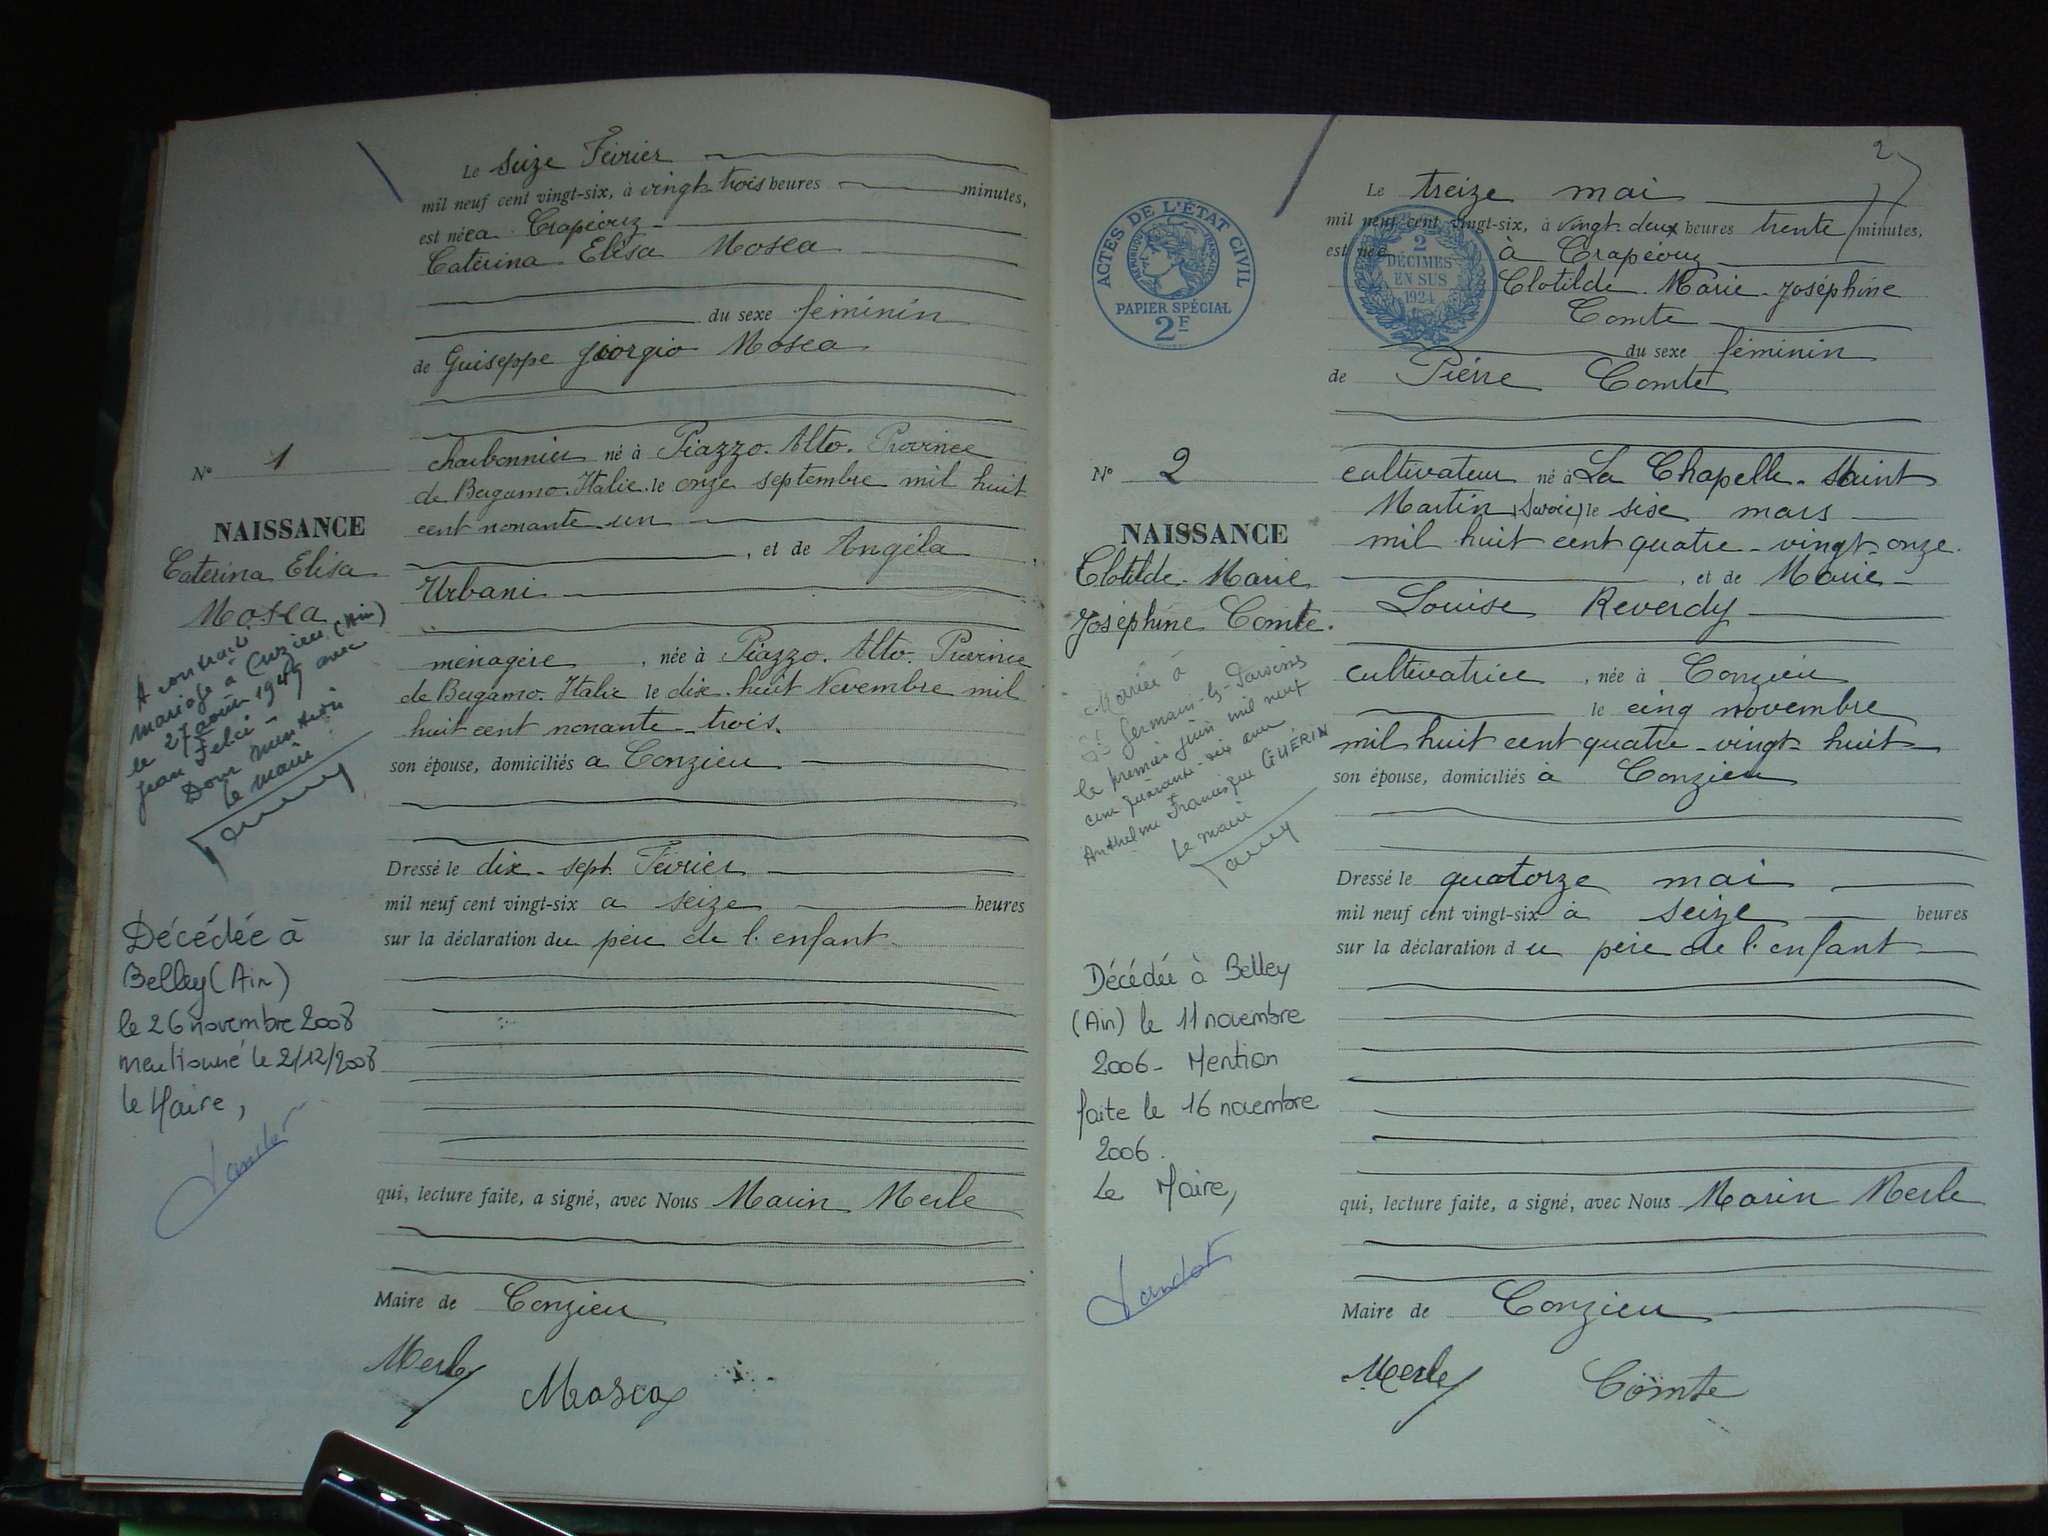 Le seize Février
mil neuf cent vingt-six, à vingt-trois heures minutes,
est née a Crapéouz
Caterina Elisa Mosca
du sexe féminin
de Guiseppe Giorgio Mosca
charbonnier né à Piazzo. Alto. Province
de Bergamo. Italie. le onze septembre mil huit
cent nonante-un
, et de Angéla
Urbani
ménagère , née à Piazzo. Alto. Province
de Bergamo. Italie le dix-huit Novembre mil
huit cent nonante-trois.
son épouse, domiciliés a Conzieu
Dressé le dix-sept Février
mil neuf cent vingt-six a seize heures
sur la déclaration du père de l'enfant
qui, lecture faite, a signé, avec Nous Marin Merle
Maire de Conzieu
Merle
Mosca
N° 1
NAISSANCE
Caterina Elisa
Mosca
A contracté
mariage à Cuzieu (Ain)
le 27 août 1949 avec
Jean Felici
Dour mention
le maire
Décédée à
Belley (Ain)
le 26 novembre 2008
mentionné le 2/12/2008
le Maire,
2
Le treize mai
mil neuf cent vingt-six, à vingt-deux heures trente minutes,
est née à Crapéouz
Clotilde Marie-Joséphine
Comte
du sexe féminin
de Pierre Comte
cultivateur né à La Chapelle-Saint
Martin (Savoie) le six mars
mil huit cent quatre-vingt-onze.
, et de Marie
Louise Reverdy
cultivatrice , née à Conzieu
le cinq novembre
mil huit cent quatre-vingt-huit
son épouse, domiciliés à Conzieu
Dressé le quatorze mai
mil neuf cent vingt-six à seize heures
sur la déclaration du père de l'enfant
qui, lecture faite, a signé, avec Nous Marin Merle
Maire de Conzieu
Merle
Comte
ACTES DE L'ÉTAT CIVIL
RÉPUBLIQUE FRANÇAISE
PAPIER SPÉCIAL
2F
2
DÉCIMES
EN SUS
1924
N° 2
NAISSANCE
Clotilde-Marie
Joséphine Comte.
Mariée à
St Germain-les-Paroisses
le premier juin mil neuf
cent quarante-six avec
Anthelme Francisque GUÉRIN
Le maire
Décédée à Belley
(Ain) le 11 novembre
2006 - Mention
faite le 16 novembre
2006.
Le Maire,